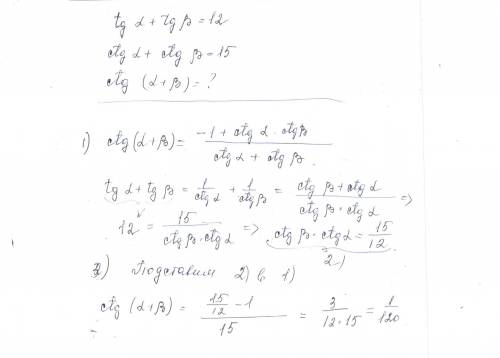 tg α + tg β = 12
ctg α + ctg β = 15
ctg (α + β) = ?
1) ctg (α + β) = (-1 + ctg α · ctg β) / (ctg α + ctg β).
tg α + tg β = 1/ctg α + 1/ctg β = (ctg β + ctg α) / (ctg β · ctg α) =>
12 = 15 / (ctg β · ctg α) => ctg β · ctg α = 15/12
2)
2) Подставим 2) в 1)
ctg (α + β) = (15/12 - 1) / 15 = 3 / (12 · 15) = 1/120